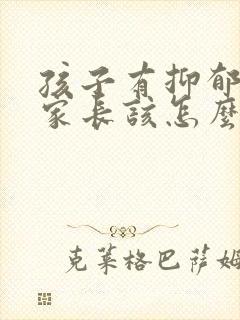 孩子有抑郁
家长该怎麼
克莱格巴萨姆